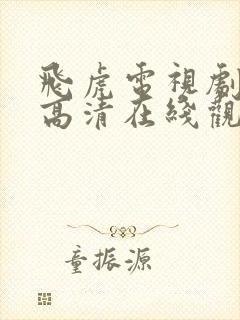 飛虎電視劇
高清在綫觀
童振源